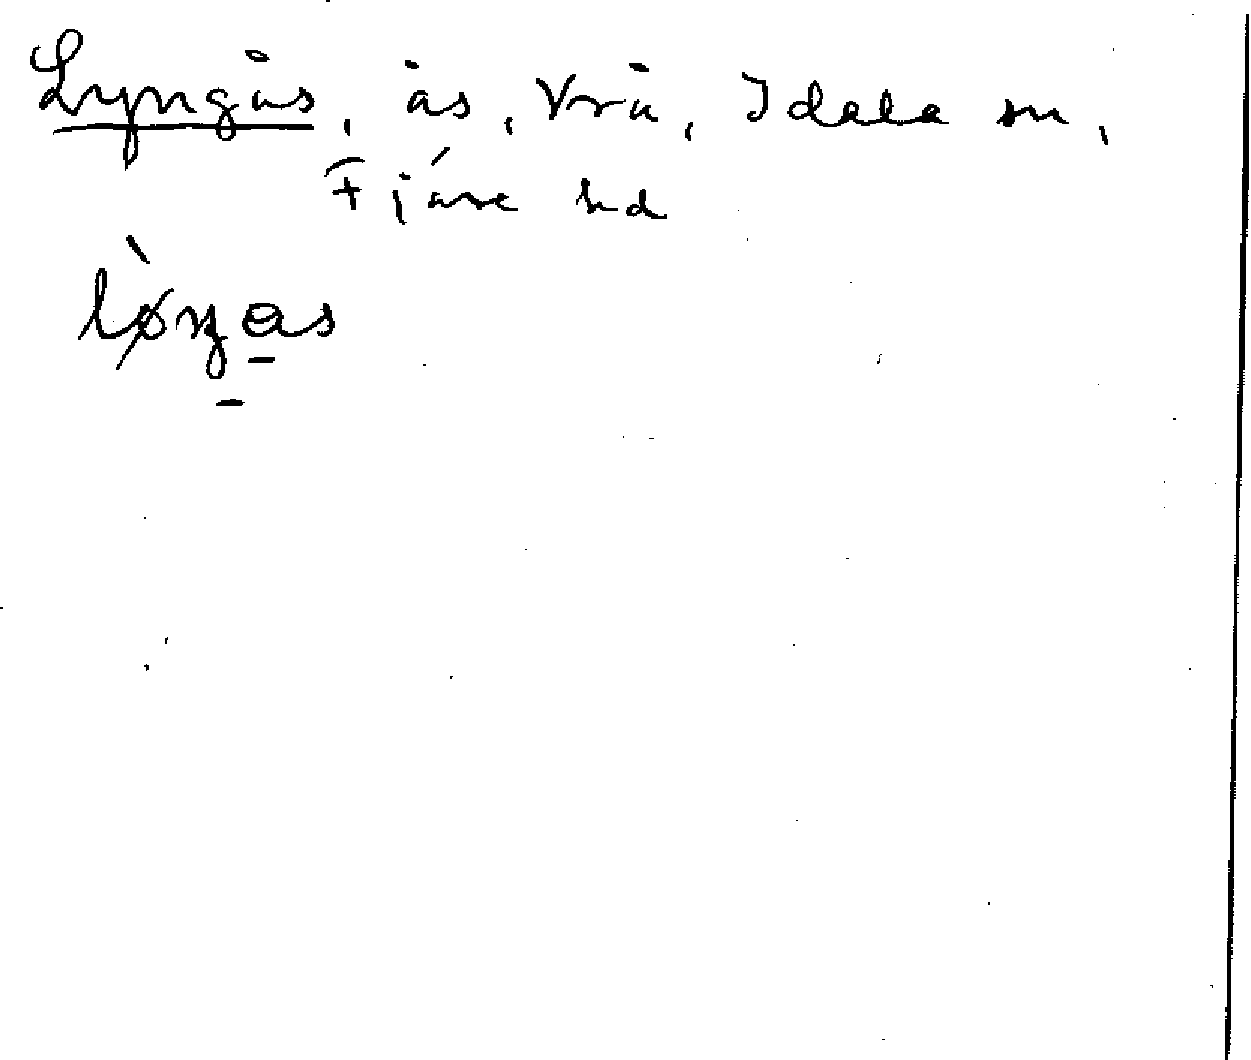 Lyngås, ås, Vrå, Idala sn,
Fjäre hd
lø̀ŋas